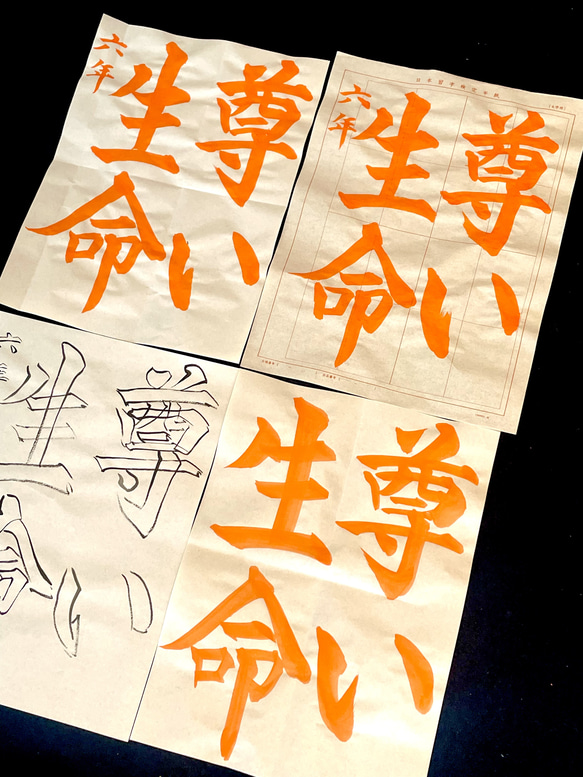 尊い
生命
六年
日本習字検定半紙
尊い
生命
六年
尊い
生命
六年
尊い
生命